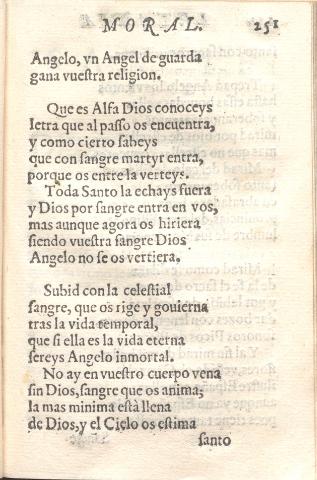 MORAL. 251
Angelo, vn Angel de guarda
gana vuestra religion.
Que es Alfa Dios conoceys
letra que al passo os encuentra,
y como cierto sabeys
que con sangre martyr entra,
porque os entre la verteys.
Toda Santo la echays fuera
y Dios por sangre entra en vos,
mas aunque agora os hiriera
siendo vuestra sangre Dios
Angelo no se os vertiera.
Subid con la celestial
sangre, que os rige y gouierna
tras la vida temporal,
que si ella es la vida eterna
sereys Angelo inmortal.
No ay en vuestro cuerpo vena
sin Dios, sangre que os anima;
la mas minima està llena
de Dios, y el Cielo os estima
santo